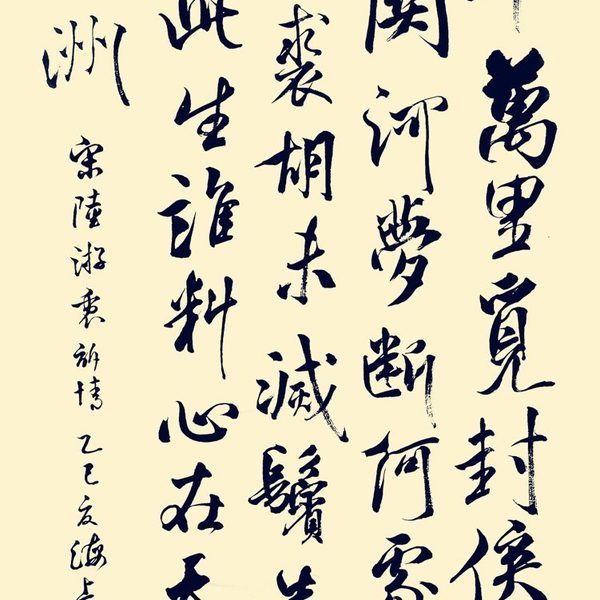 萬里覓封侯
關河夢斷何處
裘胡未滅鬢先
此生誰料心在天
洲
宋陸游衷訴情乙巳夏海上